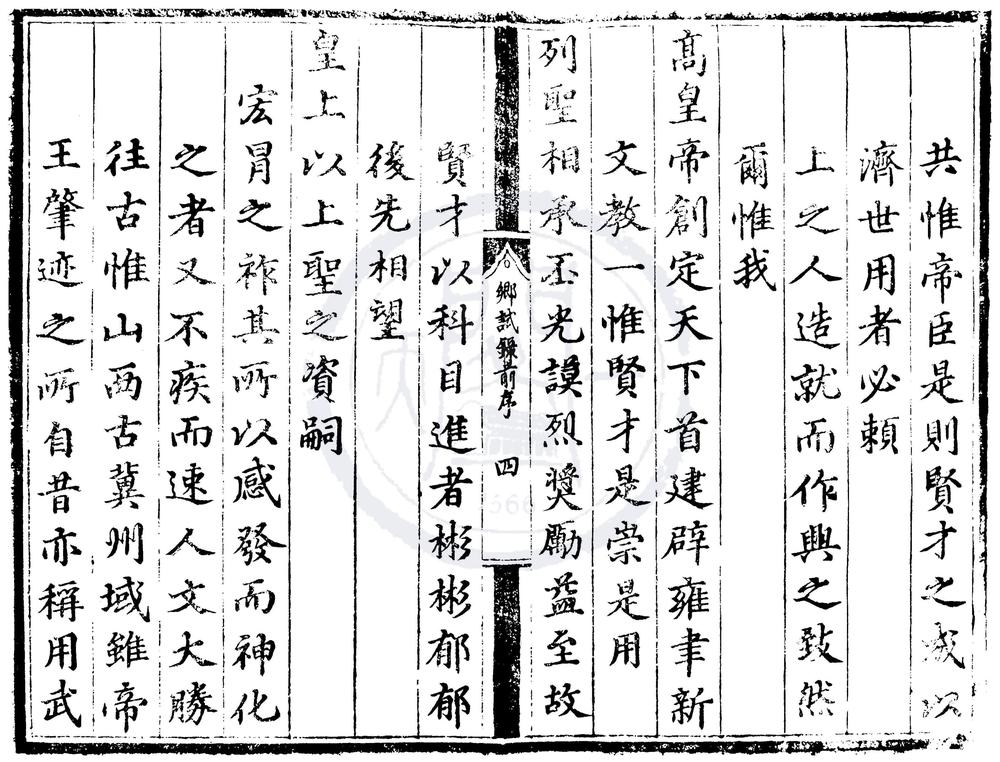 共惟帝臣是則賢才之成以
濟世用者必賴
上之人造就而作興之致然
爾惟我
高皇帝創定天下首建辟雍聿新
文教一惟賢才是崇是用
列聖相承丕光謨烈奬勵益至故
鄉試錄前序 四
賢才以科目進者彬彬郁郁
後先相望
皇上以上聖之資嗣
宏冐之祚其所以感發而神化
之者又不疾而速人文大勝
往古惟山西古冀州域雖帝
王肇迹之所自昔亦稱用武